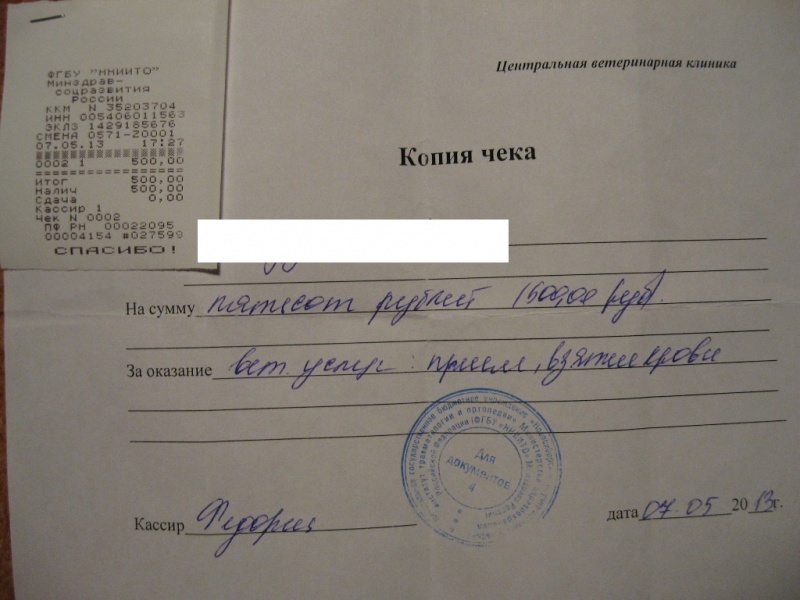 ФГБУ "ННИИТО"
Минздрав-
соцразвития
России
ККМ N 35203704
ИНН 005406011563
ЭКЛЗ 1429185676
СМЕНА 0571-Z0001
07.05.13 17:27
0002 1 500,00
ИТОГ 500,00
Налич 500,00
Сдача 0,00
Кассир 1
Чек N 0002
ПФ РН 00022095
00004154 #027599
СПАСИБО!
Центральная ветеринарная клиника
Копия чека
На сумму пятьсот рублей (500,00 руб).
За оказание вет. услуг: прием, взятие крови
Для
документов
4
Кассир
дата 07.05 2013г.